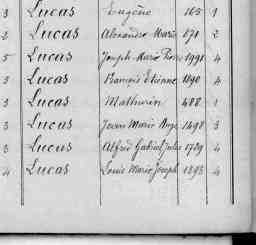 3 Lucas Eugène 165 1
2 Lucas Alexandre Marie 871 2
5 Lucas Joseph Marie Pierre 1991 4
3 Lucas François Etienne 1890 4
3 Lucas Mathurin 488 1
3 Lucas Jean Marie Ange 1498 3
3 Lucas Alfred Gabriel Jules 1789 4
4 Lucas Louis Marie Joseph 1893 4